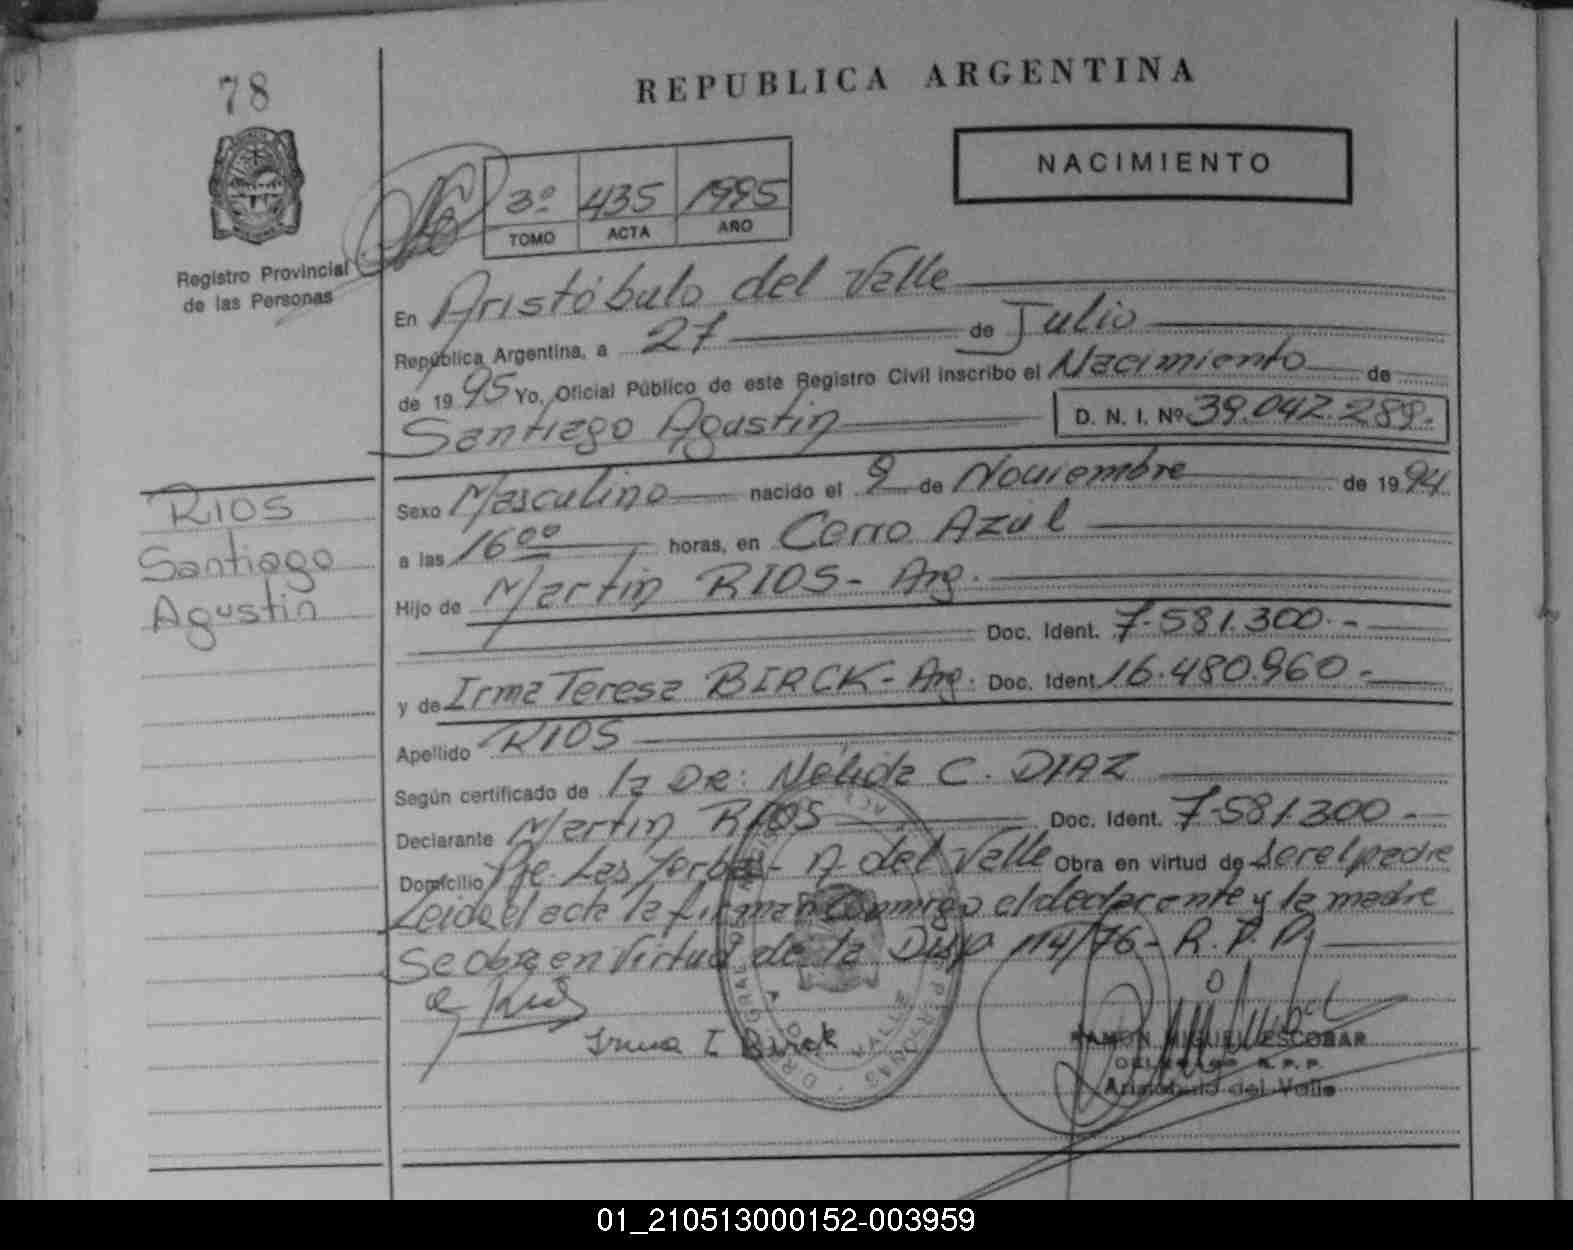 78
REPUBLICA ARGENTINA
NACIMIENTO
3º 435 1995
TOMO ACTA AÑO
Registro Provincial
de las Personas
En Aristóbulo del Valle
República Argentina, a 27 de Julio
de 1995 Yo, Oficial Público de este Registro Civil inscribo el Nacimiento de
Santiago Agustin D. N. I. Nº 39.042.289.-
RIOS
Santiago
Agustin
Sexo Masculino nacido el 9 de Noviembre de 1994
a las 16 00 horas, en Cerro Azul
Hijo de Martin RIOS - Arg.
Doc. Ident. 7.581.300.-
y de Irma Teresa BIRCK - Arg. Doc. Ident. 16.480.960-
Apellido RIOS
Según certificado de la DR: Nélida C. DIAZ
Declarante Martin RIOS Doc. Ident. 7.581.300-
Domicilio Pje. Las Yerbas - A. del Valle Obra en virtud de ser el padre
Leida el acta la firman conmigo el declarante y la madre
Se obra en virtud de la Disp 114/76 - R.P.P.
Irma T Birck
RAMON MIGUEL ESCOBAR
R.P.P.
Aristóbulo del Valle
01_210513000152-003959